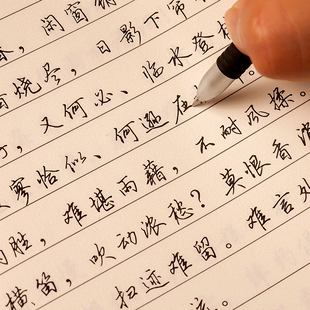 ，闲窗锁
烧尽，日影下帘
，又何必、临水登
寥恰似、何逊在
胜，难堪雨藉，不耐风揉。
横笛，吹动浓愁？莫恨香消
扫迹难留。难言处